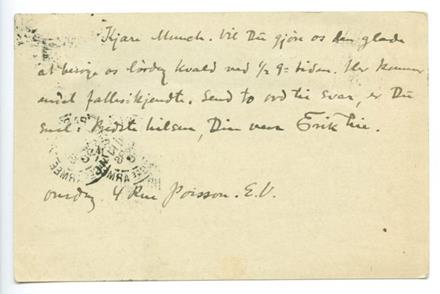 Kjære Munch. Vil Du gjøre os den glæde
at besøge os lørdag kvæld ved ½ 9-tiden. Her kommer
fælleskjendte. Send to ord til svar, er Du
snil. Bedste hilsen, Din ven Erik Lie.
onsdag 4 Rue Poisson. E.V.